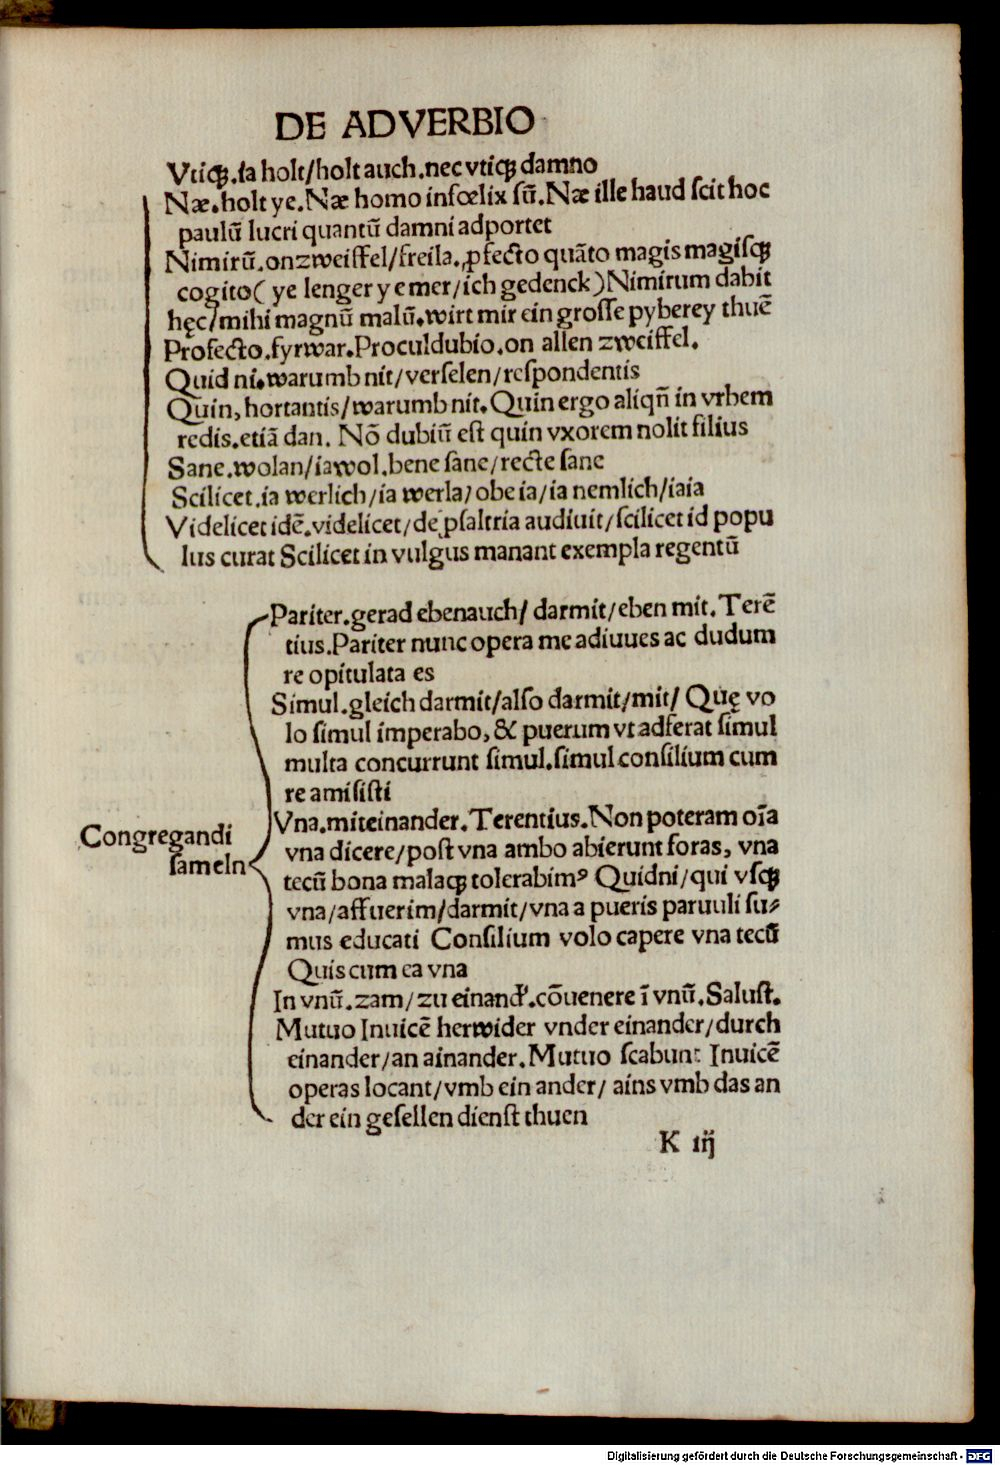 DE ADVERBIO
Vtiqꝫ.ia holt/holt auch.nec vtiqꝫ damno
Næ.holt ye.Næ homo infœlix sū.Næ ille haud scit hoc
paulū lucri quantū damni adportet
Nimirū.onzweiffel/freila.ꝓfecto quāto magis magisqꝫ
cogito( ye lenger ye mer/ich gedenck)Nimirum dabit
hęc/mihi magnū malū.wirt mir ein grosse pyberey thuē
Profecto.fyrwar.Proculdubio.on allen zweiffel.
Quid ni.warumb nit/verselen/respondentis
Quin, hortantis/warumb nit.Quin ergo aliqn̄ in vrbem
redis.etiā dan. Nō dubiū est quin vxorem nolit filius
Sane.wolan/iawol.bene sane/recte sane
Scilicet.ia werlich/ia werla/obe ia/ia nemlich/iaia
Videlicet idē.videlicet/de psaltria audiuit/scilicet id popu
lus curat Scilicet in vulgus manant exempla regentū
Pariter.gerad ebenauch/ darmit/eben mit.Terē
tius.Pariter nunc opera me adiuues ac dudum
re opitulata es
Simul.gleich darmit/also darmit/mit/ Quę vo
lo simul imperabo, & puerum vt adferat simul
multa concurrunt simul.simul consilium cum
re amisisti
Vna.miteinander.Terentius.Non poteram oīa
Congregandi
sameln
vna dicere/post vna ambo abierunt foras, vna
tecū bona malaqꝫ tolerabimꝰ Quidni/qui vsqꝫ
vna/affuerim/darmit/vna a pueris paruuli su⸗
mus educati Consilium volo capere vna tecū
Quis cum ea vna
In vnū.zam/zu einand'.cōuenere ī vnū.Salust.
Mutuo Inuicē herwider vnder einander/durch
einander/an ainander.Mutuo scabunt Inuicē
operas locant/vmb ein ander/ ains vmb das an
der ein gesellen dienst thuen
K iij
Digitalisierung gefördert durch die Deutsche Forschungsgemeinschaft - DFG